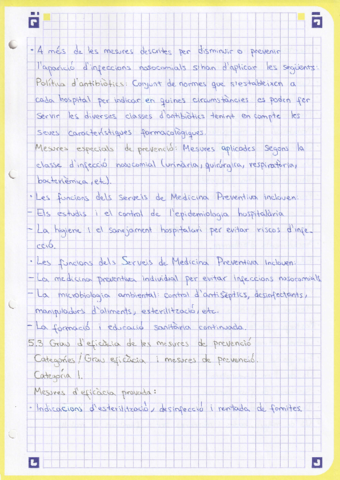 · A més de les mesures descrites per disminuir o prevenir
l'aparició d'infeccions nosocomials s'han d'aplicar les següents:
Política d'antibiòtics: Conjunt de normes que s'estableixen a
cada hospital per indicar en quines circumstàncies es poden fer
servir les diverses classes d'antibiòtics tenint en compte les
seves característiques farmacològiques
Mesures especials de prevenció: Mesures aplicades segons la
classe d'infecció nosocomial (urinària, quirúrgica, respiratòria,
bacterièmica, etc).
· Les funcions dels Serveis de Medicina Preventiva inclouen:
- Els estudis i el control de l'epidemiologia hospitalària
- La higiene i el sanejament hospitalari per evitar riscos d'infe-
cció.
· Les funcions dels Serveis de Medicina Preventiva inclouen:
- La medicina preventiva individual per evitar infeccions nosocomials
- La microbiologia ambiental control d'antisèptics, desinfectants,
manipuladors d'aliments, esterilització, etc.
- La formació i educació sanitària continuada.
5.3 Grau d'eficàcia de les mesures de prevenció
Categories/Grau eficàcia i mesures de prevenció.
Categoria 1.
Mesures d'eficàcia provada:
· Indicacions d'esterilització, desinfecció i rentada de fomites